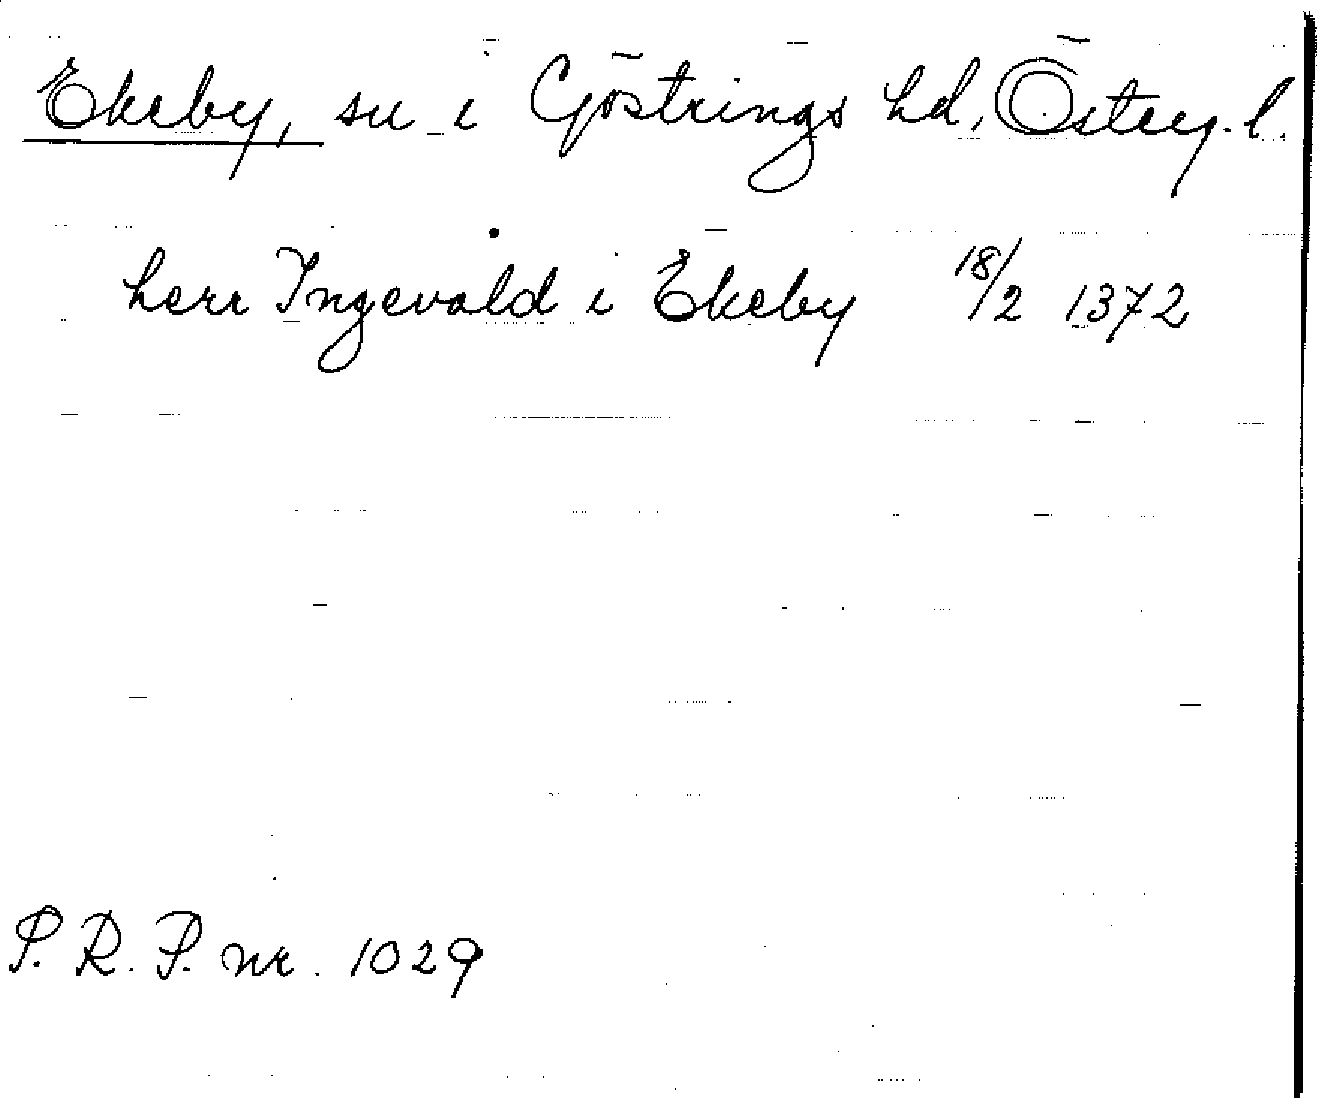 Ekeby, sn i Göstrings hd, Österg. l.
herr Ingevald i Ekeby 18/2 1372
P. R. P. nr. 1029